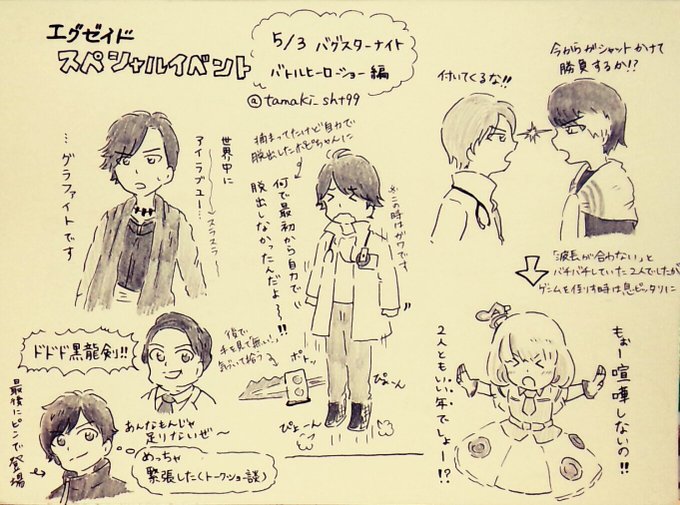 エグゼイド
スペシャルイベント
5/3 バグスターナイト
バトルヒーローショー編
@tamaki_sht99
今からガシャットかけて
勝負するか!?
付いてくるな!!
世界中に
アイラブユー…
スラスラ→
…グラファイトです
捕まってたけど自力で
脱出したポピちゃんに
何で最初から自力で
脱出しなかったんだよ〜!!
※この時はガワです
後で
手を見て無い!と
気づいて拾う
ポトッ
ぴょーん
ぴょーん
「波長が合わない」と
バチバチしていた2人でしたが
ゲームを倒す時は息ピッタリに
もぉー喧嘩しないの!!
2人ともいい年でしょー!?
ドドド黒龍剣!!
あんなもんじゃ
足りないぜ〜
めっちゃ
緊張した(トークショー談)
最後にピンで登場